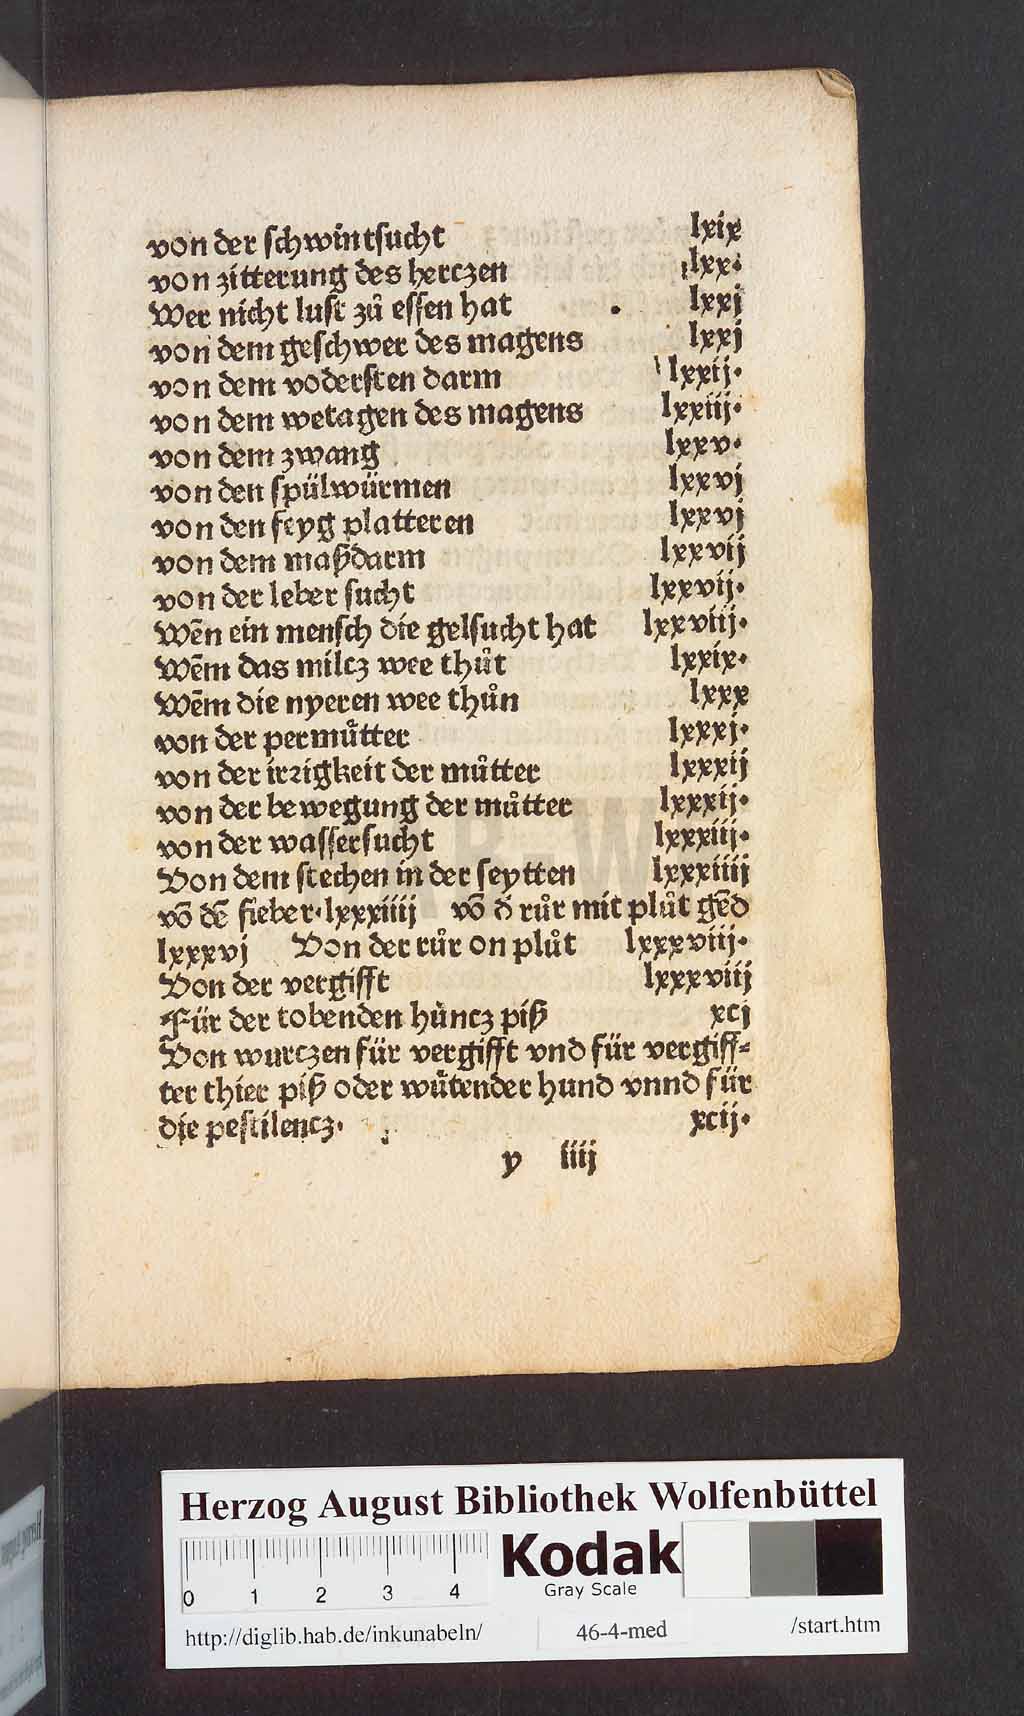 von der schwintsucht lxix
von zitterung des herczen lxx.
Wer nicht lust zů essen hat lxxj
von dem geschwer des magens lxxj
von dem vodersten darm lxxij.
von dem wetagen des magens lxxiij.
von dem zwang lxxv.
von den spülwürmen lxxvj
von den feyg platteren lxxvj
von dem maßdarm lxxvij
von der leber sucht lxxvij.
Wēn ein mensch die gelsucht hat lxxviij.
Wēm das milcz wee thůt lxxix.
Wēm die nyeren wee thůn lxxx
von der permůtter lxxxj.
von der irrigkeit der můtter lxxxij
von der bewegung der můtter lxxxij.
von der wassersucht lxxxiij.
Von dem stechen in der seytten lxxxiiij
vō dē fieber. lxxxiiij vō d̄ růr mit plůt gēd
lxxxvj Von der růr on plůt lxxxviij.
Von der vergifft lxxxviij
Für der tobenden hůncz piß xcj
Von wurczen für vergifft vnd für vergiff⸗
ter thier piß oder wůtender hund vnnd für
die pestilencz. xcij.
y iiij
Herzog August Bibliothek Wolfenbüttel
Kodak
Gray Scale
0 1 2 3 4
http://diglib.hab.de/inkunabeln/ 46-4-med /start.htm